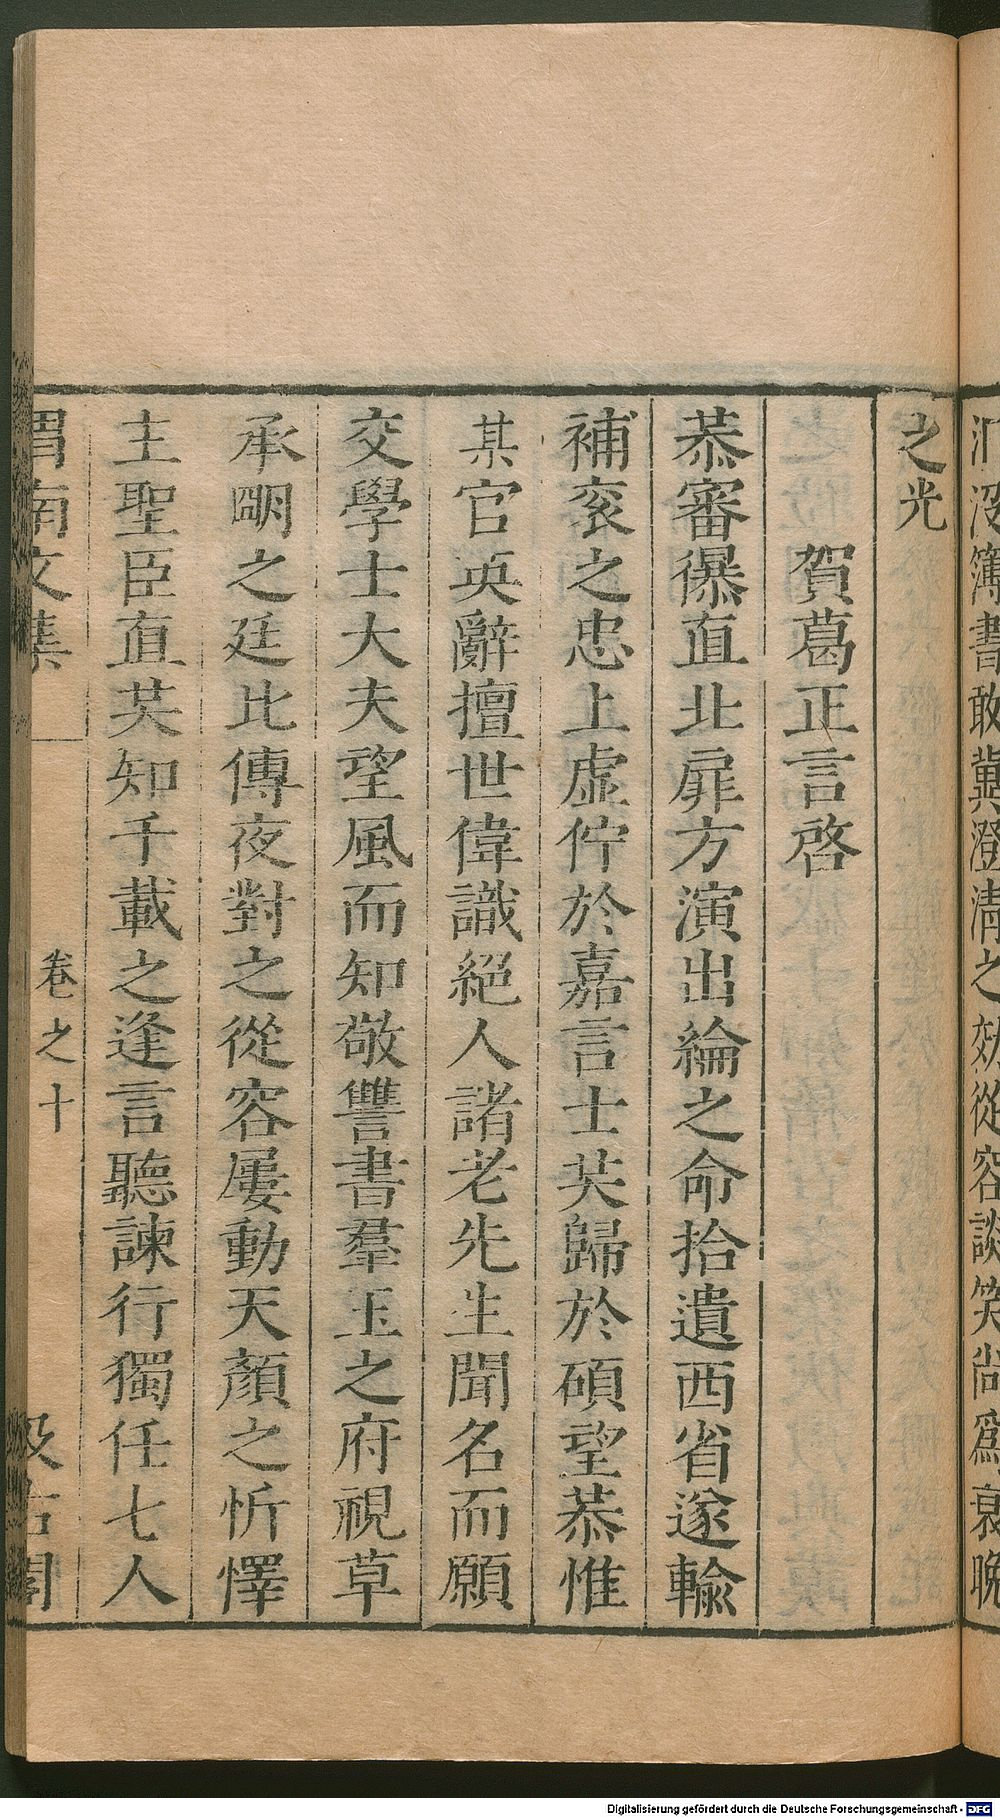 汩没簿書敢冀澄清之効從容談笑尚爲衰晚
之光
賀葛正言啓
恭審㬥直北扉方演出綸之命拾遺西省遂輸
補衮之忠上虛佇於嘉言士英歸於碩望恭惟
某官英辭擅世偉識絕人諸老先生聞名而願
交學士大夫望風而知敬讐書羣玉之府視草
承明之廷比傳夜對之從容屢動天顏之忻懌
主聖臣直英知千載之逢言聽諫行獨任七人
渭南文集
卷之十
汲古閣
Digitalisierung gefördert durch die Deutsche Forschungsgemeinschaft - DFG